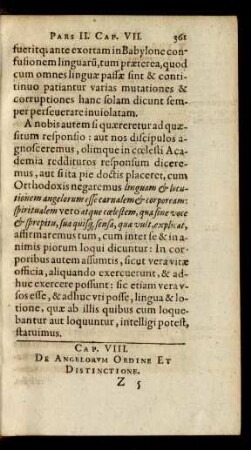 PARS II. CAP. VII. 361
fuerit q; ante exortam in Babylone con-
fusionem linguarū, tum præterea, quod
cum omnes linguæ passæ sint & conti-
nuo patiantur varias mutationes &
corruptiones hanc solam dicunt sem-
per perseuerare inuiolatam.
A nobis autem si quæreretur ad quæ-
situm responsio: aut nos discipulos a-
gnosceremus, olimque in cœlesti Aca-
demia redditutos responsum dicere-
mus, aut si ita pie doctis placeret, cum
Orthodoxis negaremus linguam & locu-
tionem angelorum esse carnalem & corpoream:
spiritualem vero atque cœlestem, qua sine voce
& strepitu, sua quisq; sensa, qua vult, explicat,
affirmaremus tum, cum inter se & in a-
nimis piorum loqui dicuntur: In cor-
poribus autem assumtis, sicut vera vitæ
officia, aliquando exercuerunt, & ad-
huc exercere possunt: sic etiam vera v-
sos esse, & adhuc vti posse, lingua & lo-
tione, quæ ab illis quibus cum loque-
bantur aut loquuntur, intelligi potest,
statuimus.
CAP. VIII.
DE ANGELORVM ORDINE ET
DISTINCTIONE.
Z 5